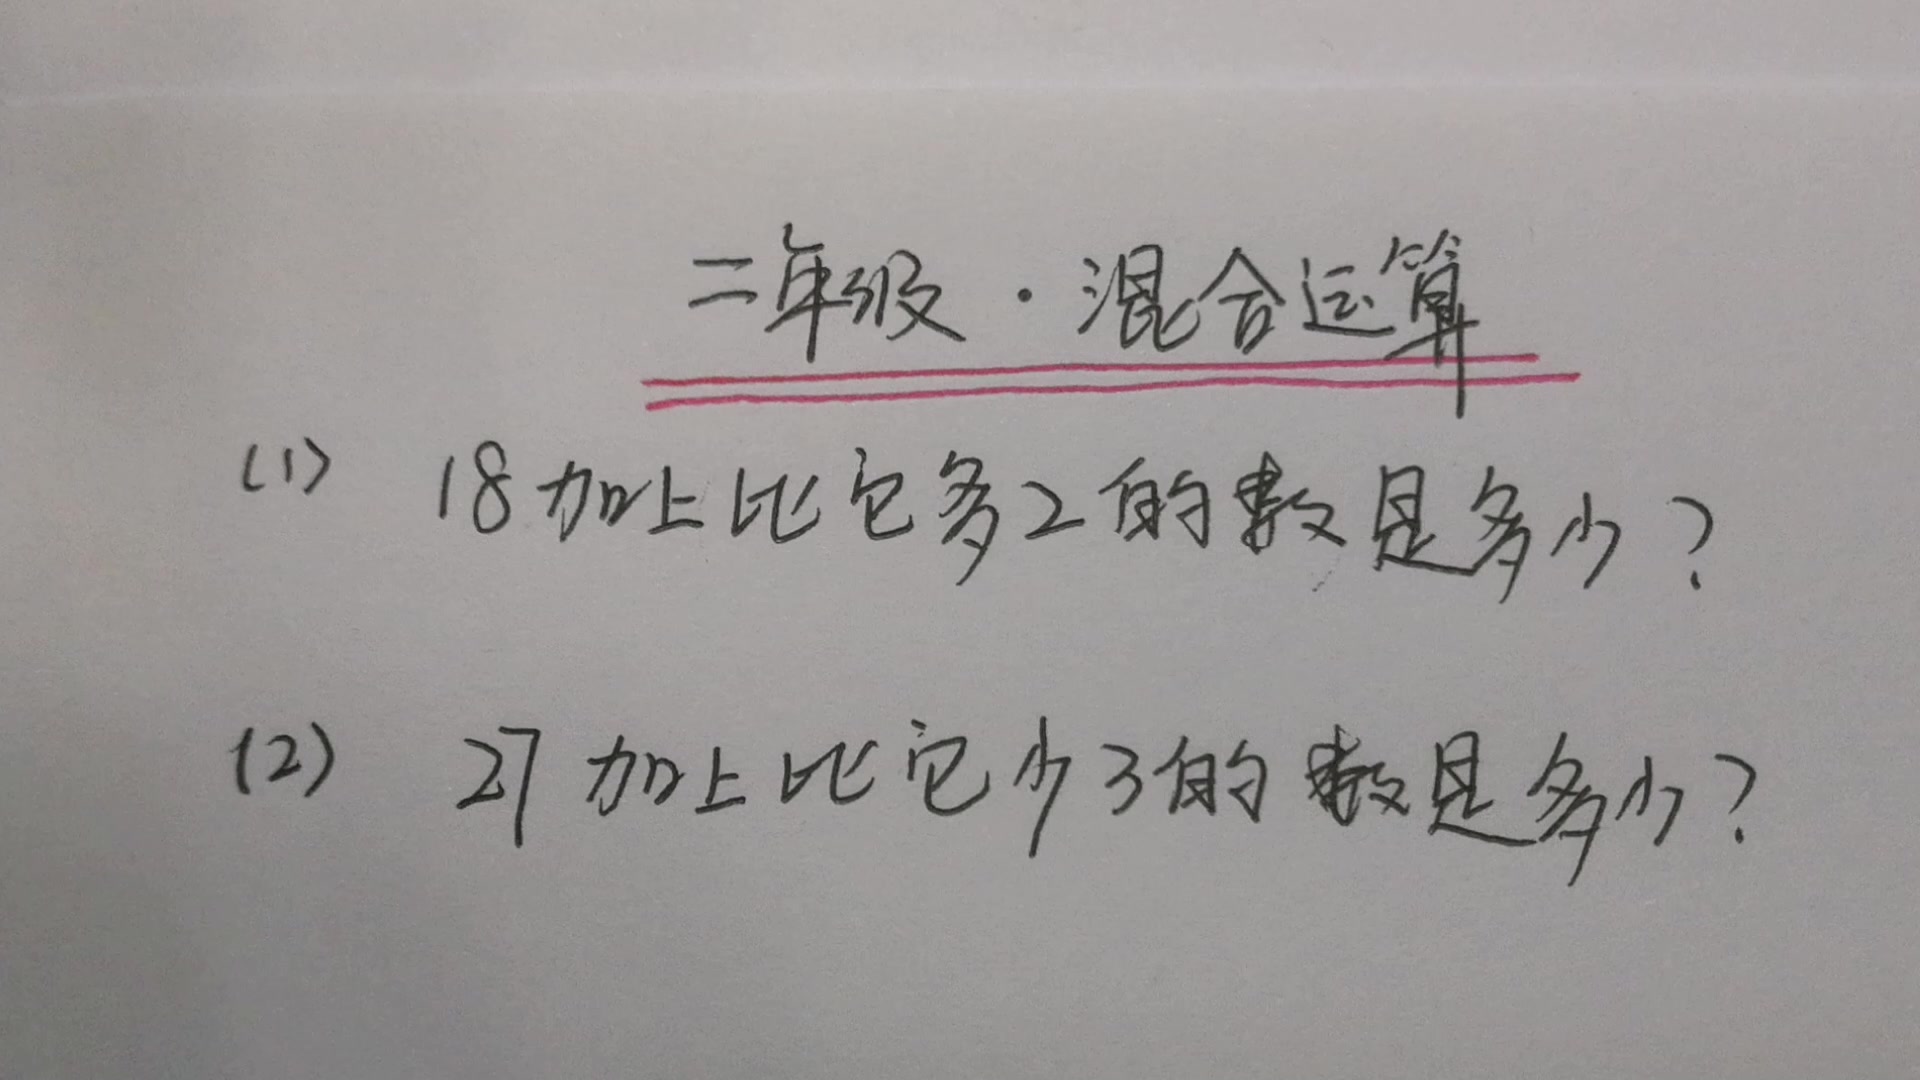 二年级·混合运算
(1) 18加上比它多2的数是多少?
(2) 27加上比它少3的数是多少?